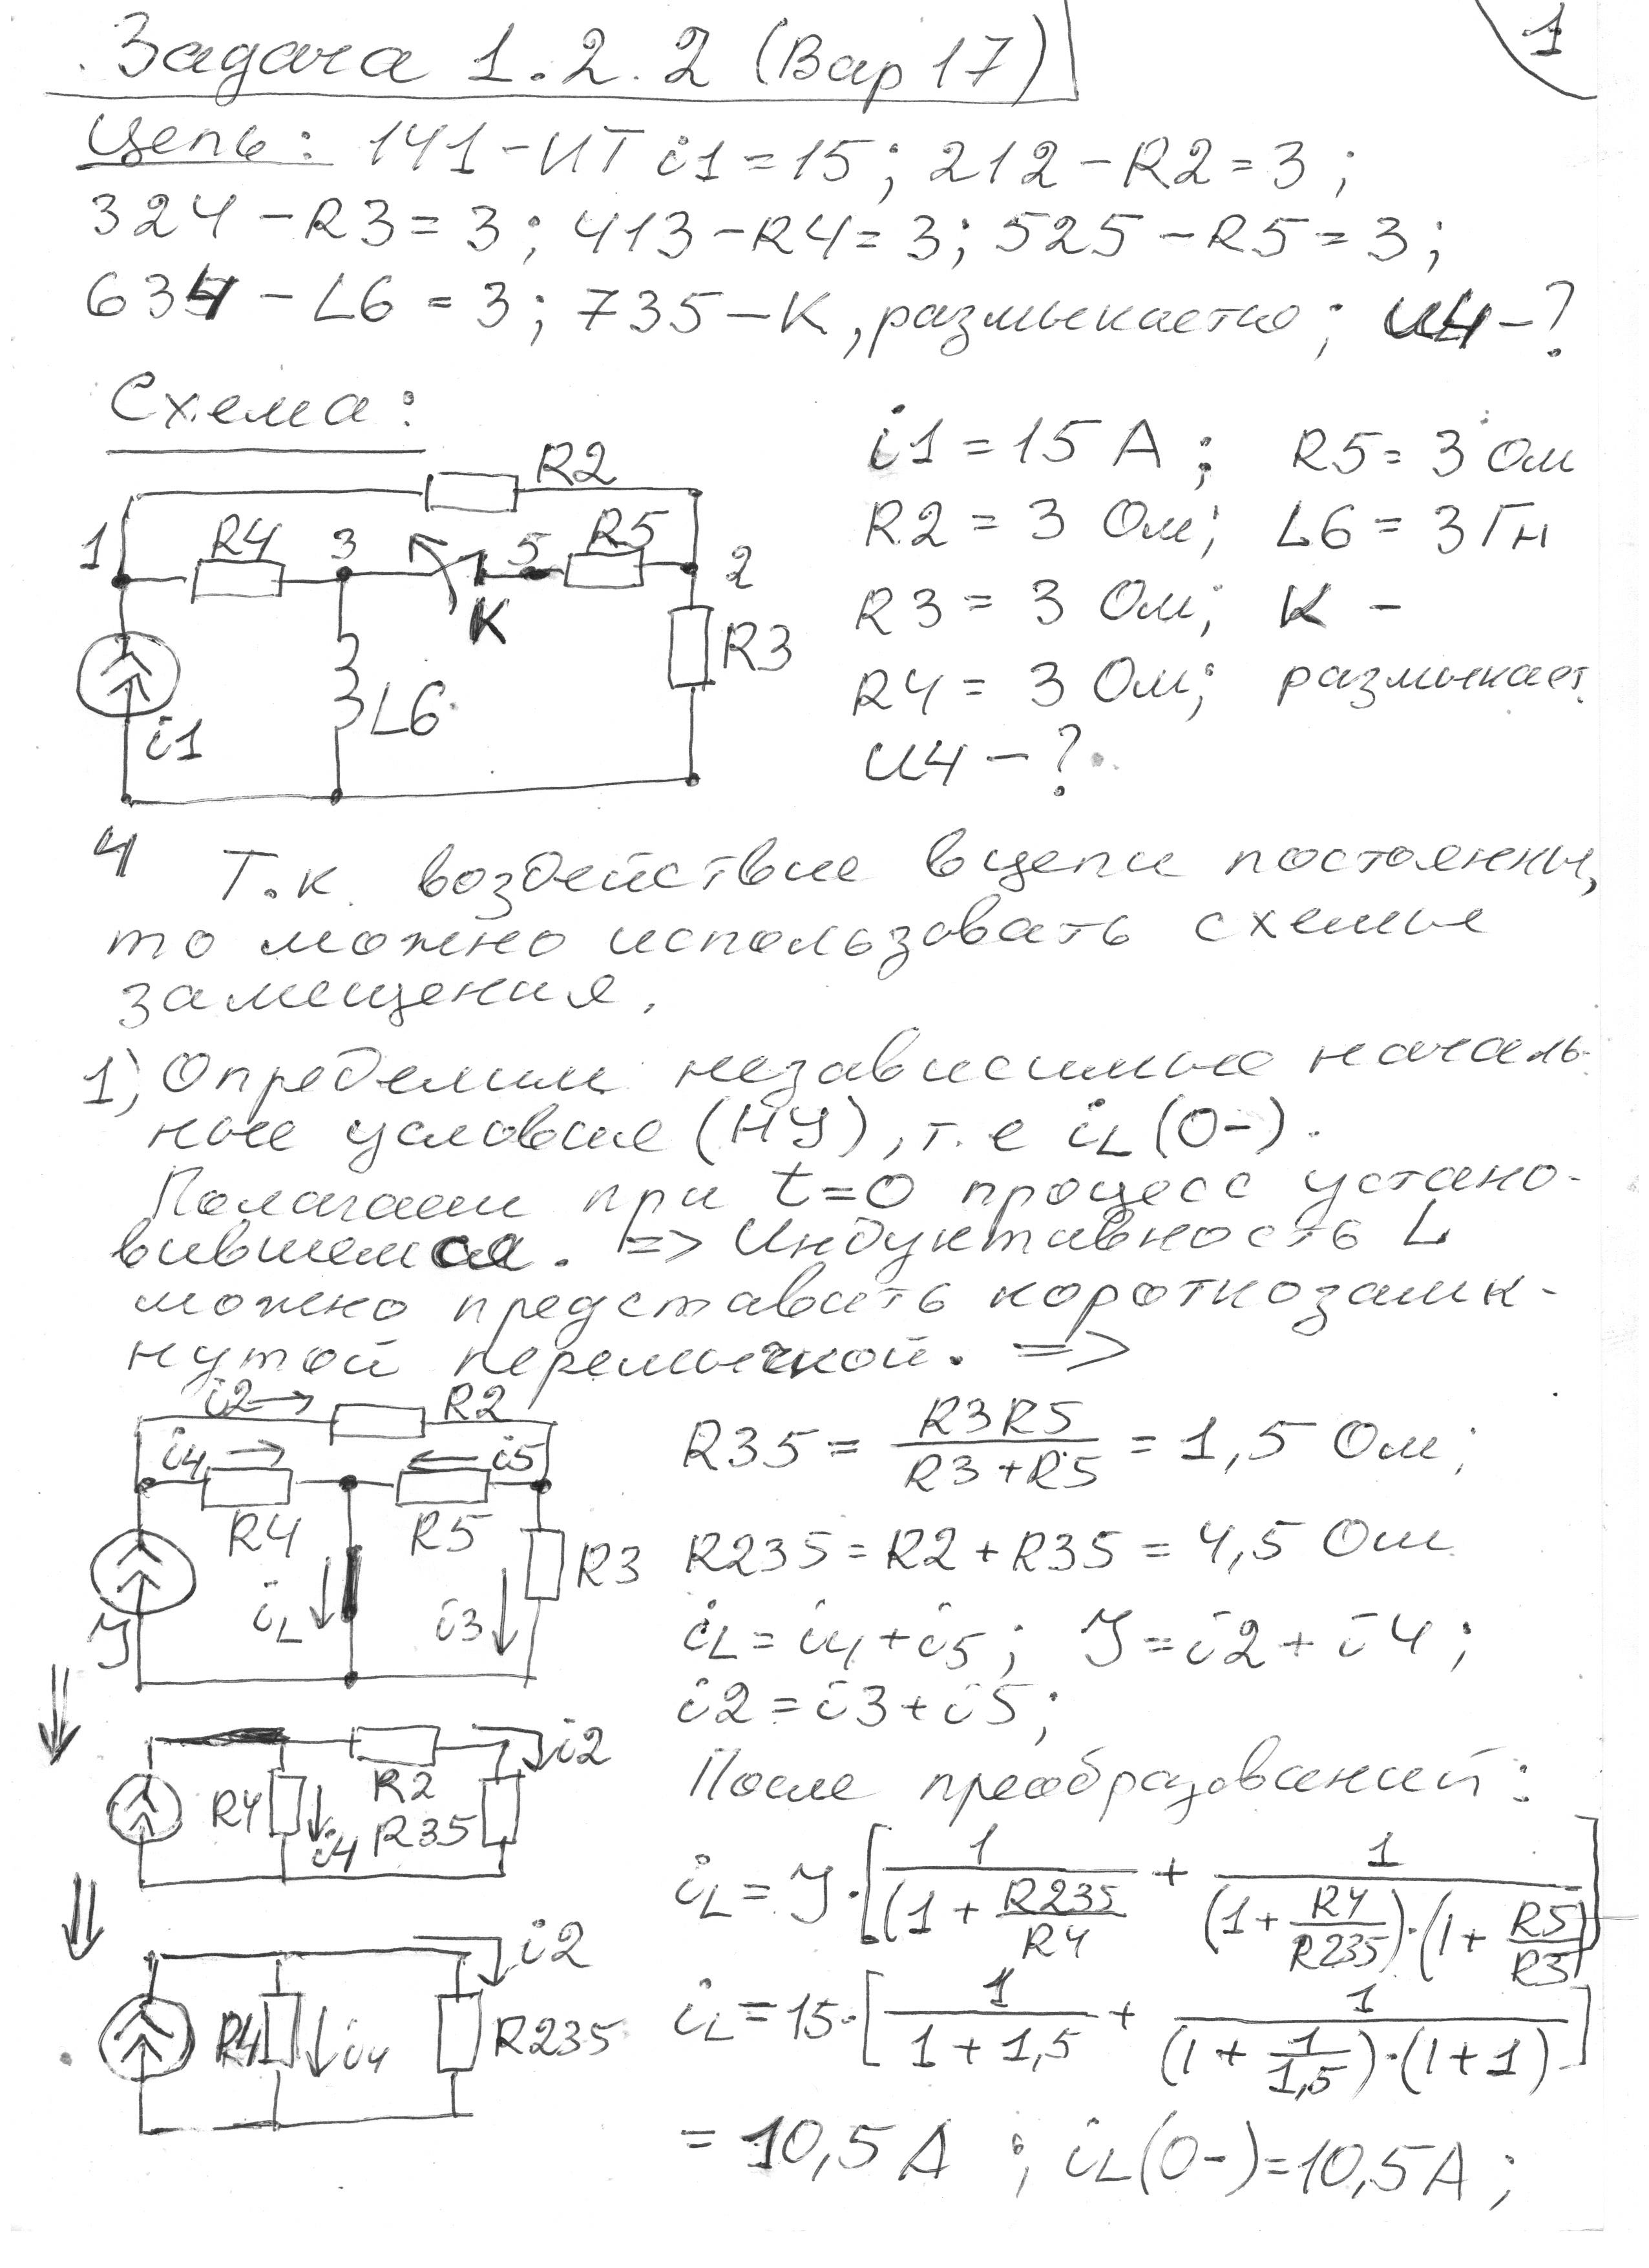 1
Задача 1.2.2 (Вар 17)
Цепь: 141-ИТ i1=15; 212-R2=3;
324-R3=3; 413-R4=3; 525-R5=3;
634-L6=3; 735-К, размыкается; u4-?
Схема:
R2
1 R4 3 5 R5 2
К
R3
L6
i1
4
i1=15 А; R5=3 Ом
R2=3 Ом; L6=3 Гн
R3=3 Ом; К -
R4=3 Ом; размыкает.
u4-?
Т.к. воздействие в цепи постоянны,
то можно использовать схемы
замещения.
1) Определим независимые началь-
ные условия (НУ), т.е iL(0-).
Полагаем при t=0 процесс устано-
вившемся. => Индуктивность L
можно представить короткозамк-
нутой перемычкой. =>
i2 → R2
i4 → ← i5
R4 R5 R3
J iL i3
R35 = R3R5 / (R3+R5) = 1,5 Ом;
R235=R2+R35=4,5 Ом
iL=i4+i5; J=i2+i4;
i2=i3+i5;
i2
R4 i4 R2 R35
После преобразований:
iL=J·[1/(1+R235/R4) + 1/((1+R4/R235)·(1+R5/R3))]
i2
R4 i4 R235
iL=15·[1/(1+1,5) + 1/((1+1/1,5)·(1+1))]
=10,5 А; iL(0-)=10,5А;